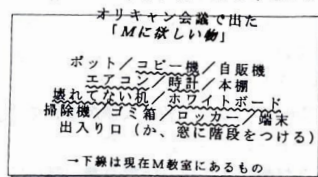 オリキャン会議で出た
「Mに欲しい物」
ポット／コピー機／自販機
エアコン／時計／本棚
壊れてない机／ホワイトボード
掃除機／ゴミ箱／ロッカー／端末
出入り口（か、窓に階段をつける）
→下線は現在M教室にあるもの